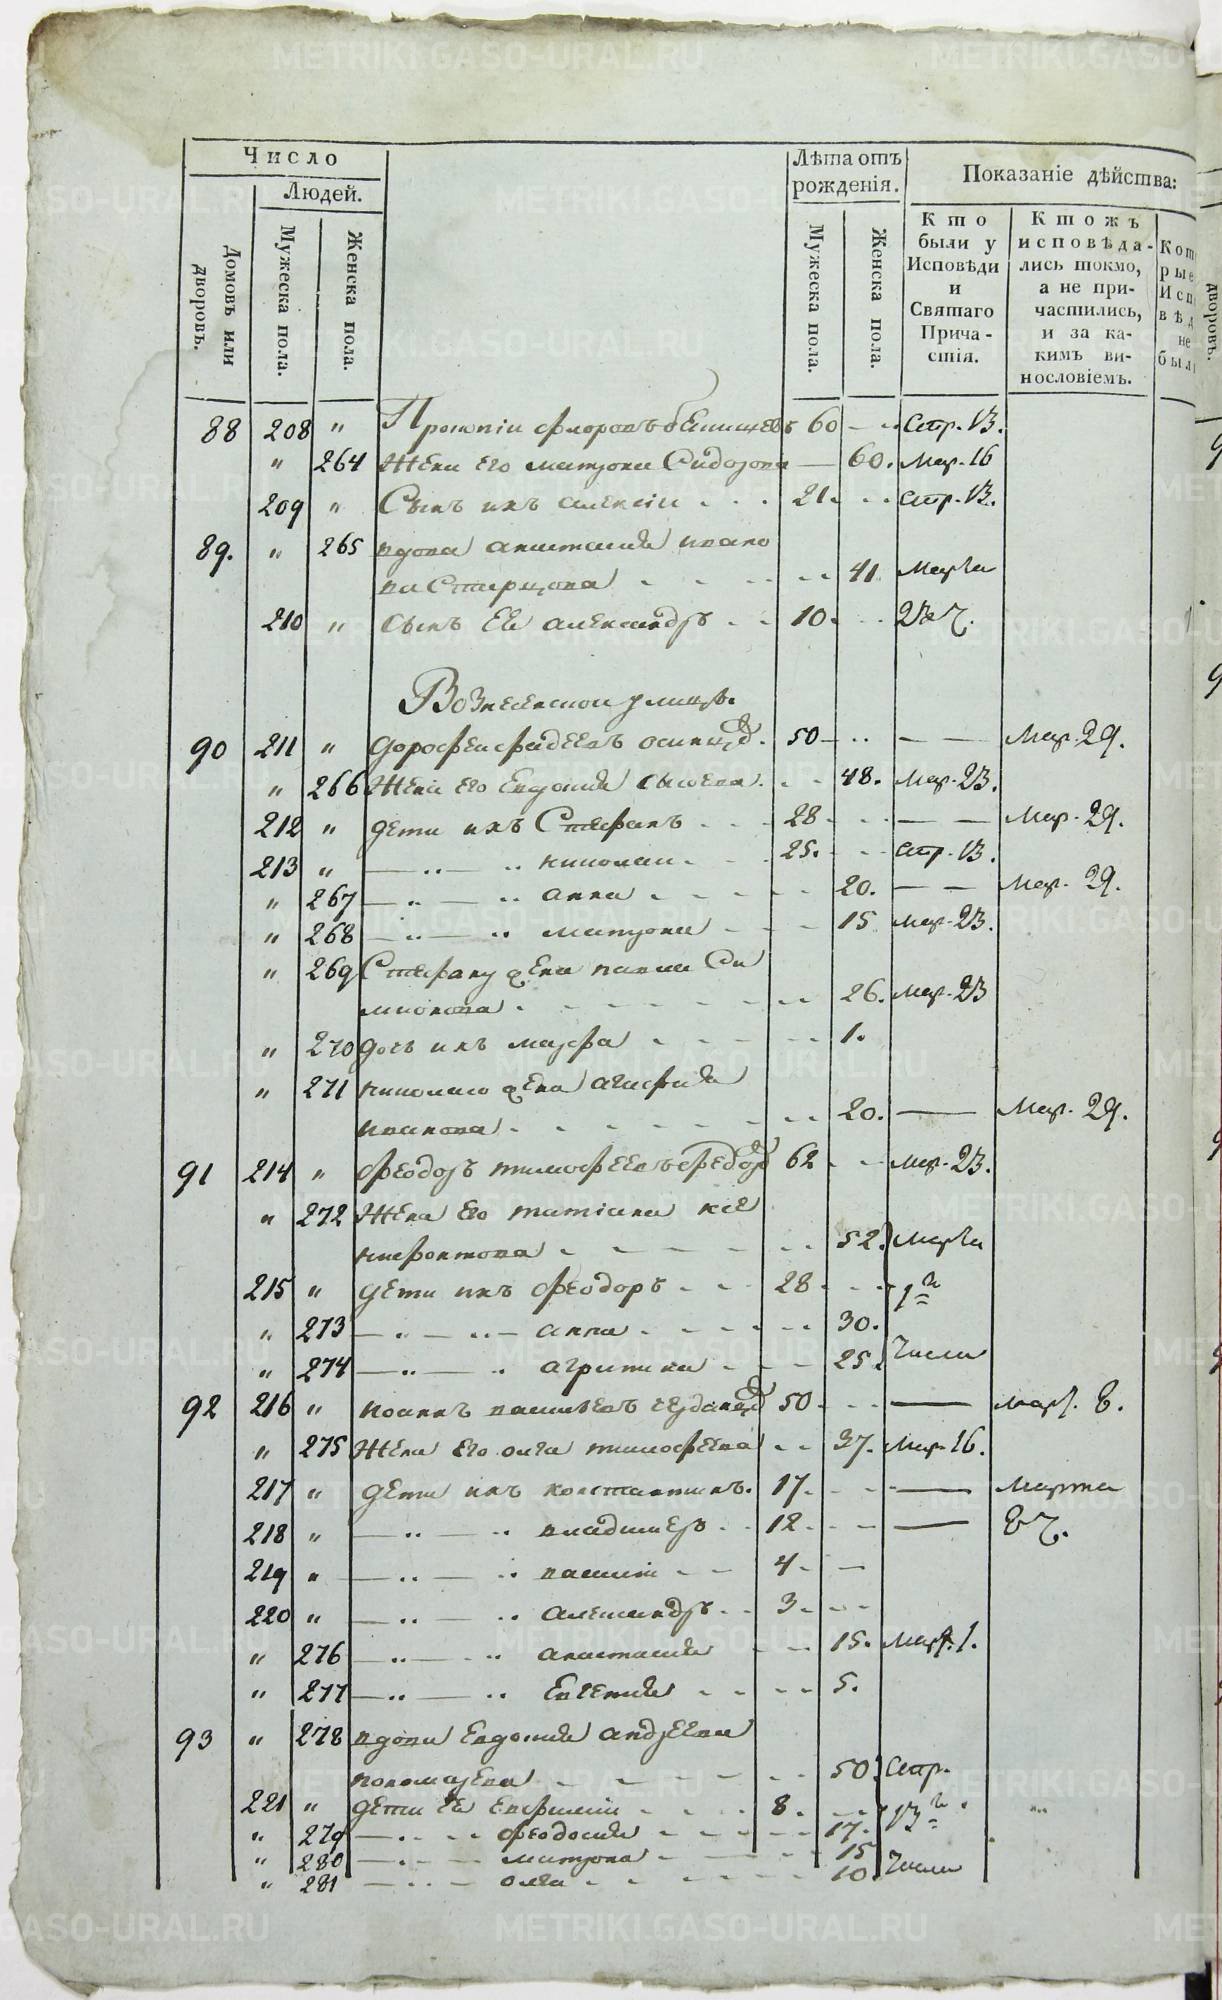 Число
Людей.
Домовъ или дворовъ.
Мужеска пола.
Женска пола.
Лѣта отъ рожденія.
Мужеска пола.
Женска пола.
Показаніе дѣйства:
Кто были у Исповѣди и Святаго Причастія.
Ктожъ исповѣдались токмо, а не причастились, и за какимъ винословіемъ.
дворовъ.
88 208 " Прокопіи Флоровъ 60 - - Апр. 13.
" 264 Жена его матрона Сидорова — 60. Мар. 16
209 " Сынъ ихъ алексіи - - - 21. - - Апр. 13.
89. " 265 вдова анастасия ивано
ва - - - - - 41 Марта
210 " сынъ Ея александръ - - 10. - - 23 ч.
Вознесенскои улицѣ.
90 211 " дорофеи фадеевъ 50 - - - — — Мар. 29.
" 266 Жена его Евдокия сысоева - - 48. Мар. 23.
212 " дети ихъ Стефанъ - - - 28 - - - — — Мар. 29.
213 " — " — " николаи - - - 25. - - - апр. 13.
" 267 — " — " анна - - - - - 20. — — Мар. 29.
" 268 — " — " матрона - - - - 15 Мар. 23.
" 269 Стефану жена Си
мионова - - - - - - - - 26. Мар. 23
" 270 дочь ихъ марфа - - - - - 1.
" 271 николаю жена агафия
иванова - - - - - - - - 20. — Мар. 29.
91 214 " Феодоръ тимофеевъ 62 - - - Мар. 23.
" 272 Жена Его татиана ксе
нофонтова - - - - - - - 52. Марта
215 " дети ихъ Феодоръ - - - 28 - - - 1го
" 273 — " — " — анна - - - - - - 30.
" 274 — " — " агрипина - - - - 25. Числа
92 216 " иоаннъ васильевъ 50 - - - — март. 8.
" 275 Жена Его олга тимофеева - - 37. Мар. 16.
217 " дети ихъ константинъ. 17. - - - — Марта
218 " — " — " владимеръ - - 12. - - - — 8 ч.
219 " — " — " василіи - - 4. —
220 " — " — " александръ - - 3. - - -
" 276 — " — " анастасия - - - 15. Март. 1.
" 277 — " — " Евгения - - - - 5.
93 " 278 вдова Евдокия андреева
- - - - - - 50. апр.
221 " дети Ея - - - - 8. - - - 13го
" 279 — " - - феодосия - - - - - 17.
" 280 — " - - матрона - - - - - 15
" 281 — " - - олга - - - - - - 10. Числа